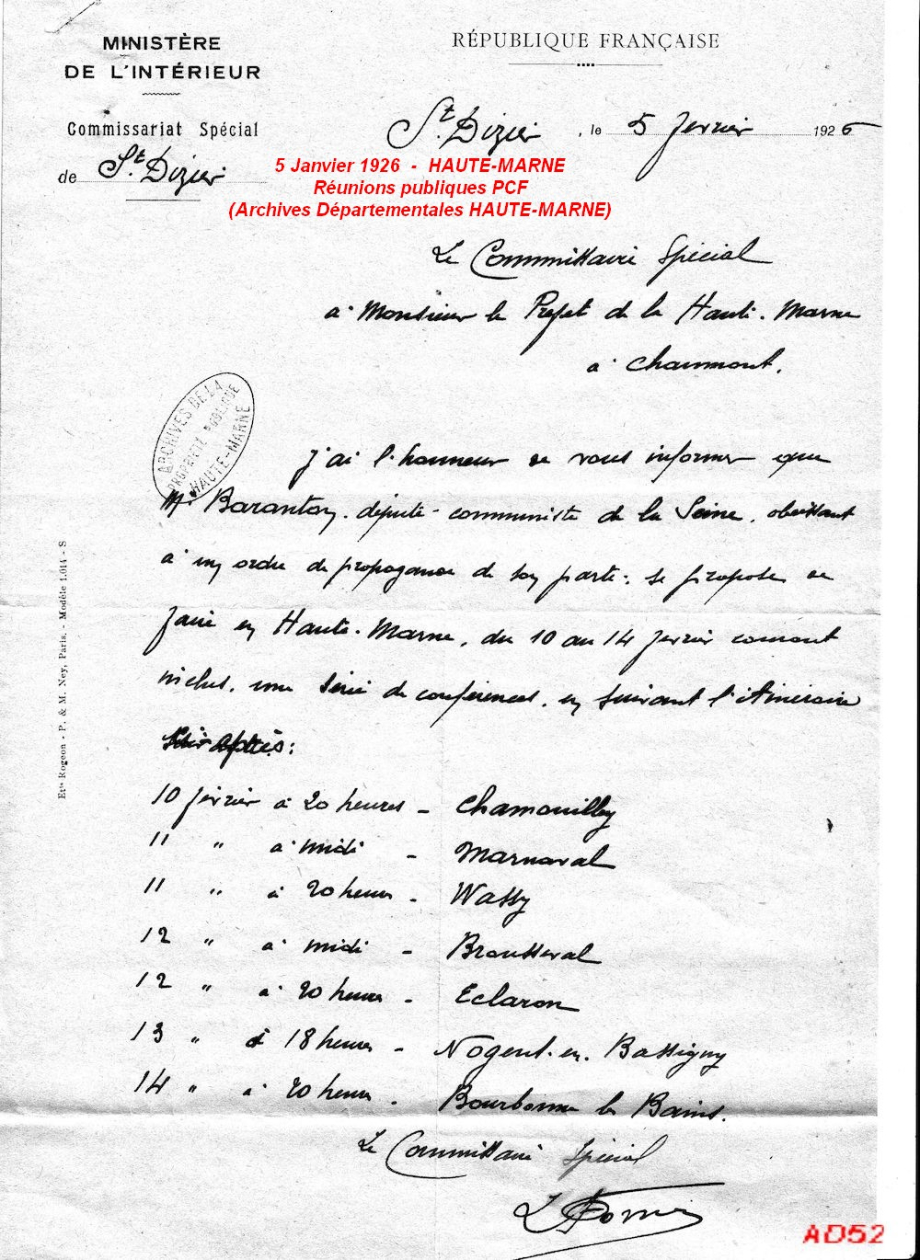 MINISTÈRE
DE L'INTÉRIEUR
RÉPUBLIQUE FRANÇAISE
Commissariat Spécial
de St. Dizier
St. Dizier, le 5 fevrier 1926
5 Janvier 1926 - HAUTE-MARNE
Réunions publiques PCF
(Archives Départementales HAUTE-MARNE)
Le Commissaire Spécial
à Monsieur le Préfet de la Haute-Marne
à Chaumont.
ARCHIVES DE LA
PROPRIÉTÉ PUBLIQUE
HAUTE-MARNE
J'ai l'honneur de vous informer que
Mr Baranton, député communiste de la Seine, obéissant
à un ordre de propagande de son parti, se propose de
faire en Haute-Marne, du 10 au 14 fevrier courant
inclus, une série de conférences, en suivant l'itinéraire
après:
10 février à 20 heures - Chamouilley
11 " à midi - Marnaval
11 " à 20 heures - Wassy
12 " à midi - Brousseval
12 " à 20 heures - Eclaron
13 " à 18 heures - Nogent-en-Bassigny
14 " à 20 heures - Bourbonne les Bains.
Le Commissaire Spécial
Ets Rogeon - P. & M. Ney, Paris. - Modèle 1.014 - S
AD52